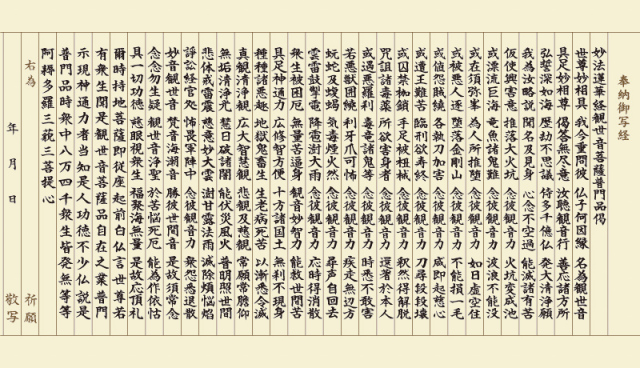 奉納御写経
妙法蓮華経観世音菩薩普門品偈
世尊妙相具 我今重問彼 仏子何因縁 名為観世音
具足妙相尊 偈答無尽意 汝聴観音行 善応諸方所
弘誓深如海 歴劫不思議 侍多千億仏 発大清浄願
我為汝略説 聞名及見身 心念不空過 能滅諸有苦
仮使興害意 推落大火坑 念彼観音力 火坑変成池
或漂流巨海 竜魚諸鬼難 念彼観音力 波浪不能没
或在須弥峯 為人所推堕 念彼観音力 如日虚空住
或被悪人逐 堕落金剛山 念彼観音力 不能損一毛
或値怨賊繞 各執刀加害 念彼観音力 咸即起慈心
或遭王難苦 臨刑欲寿終 念彼観音力 刀尋段段壊
或囚禁枷鎖 手足被杻械 念彼観音力 釈然得解脱
呪詛諸毒薬 所欲害身者 念彼観音力 還著於本人
或遇悪羅刹 毒竜諸鬼等 念彼観音力 時悉不敢害
若悪獣囲繞 利牙爪可怖 念彼観音力 疾走無辺方
蚖蛇及蝮蝎 気毒煙火然 念彼観音力 尋声自回去
雲雷鼓掣電 降雹澍大雨 念彼観音力 応時得消散
衆生被困厄 無量苦逼身 観音妙智力 能救世間苦
具足神通力 広修智方便 十方諸国土 無刹不現身
種種諸悪趣 地獄鬼畜生 生老病死苦 以漸悉令滅
真観清浄観 広大智慧観 悲観及慈観 常願常瞻仰
無垢清浄光 慧日破諸闇 能伏災風火 普明照世間
悲体戒雷震 慈意妙大雲 澍甘露法雨 滅除煩悩焔
諍訟経官処 怖畏軍陣中 念彼観音力 衆怨悉退散
妙音観世音 梵音海潮音 勝彼世間音 是故須常念
念念勿生疑 観世音浄聖 於苦悩死厄 能為作依怙
具一切功徳 慈眼視衆生 福聚海無量 是故応頂礼
爾時持地菩薩即従座起前白仏言世尊若
有衆生聞是観世音菩薩品自在之業普門
示現神通力者当知是人功徳不少仏説是
普門品時衆中八万四千衆生皆発無等等
阿耨多羅三藐三菩提心
右為 祈願
年 月 日 敬写